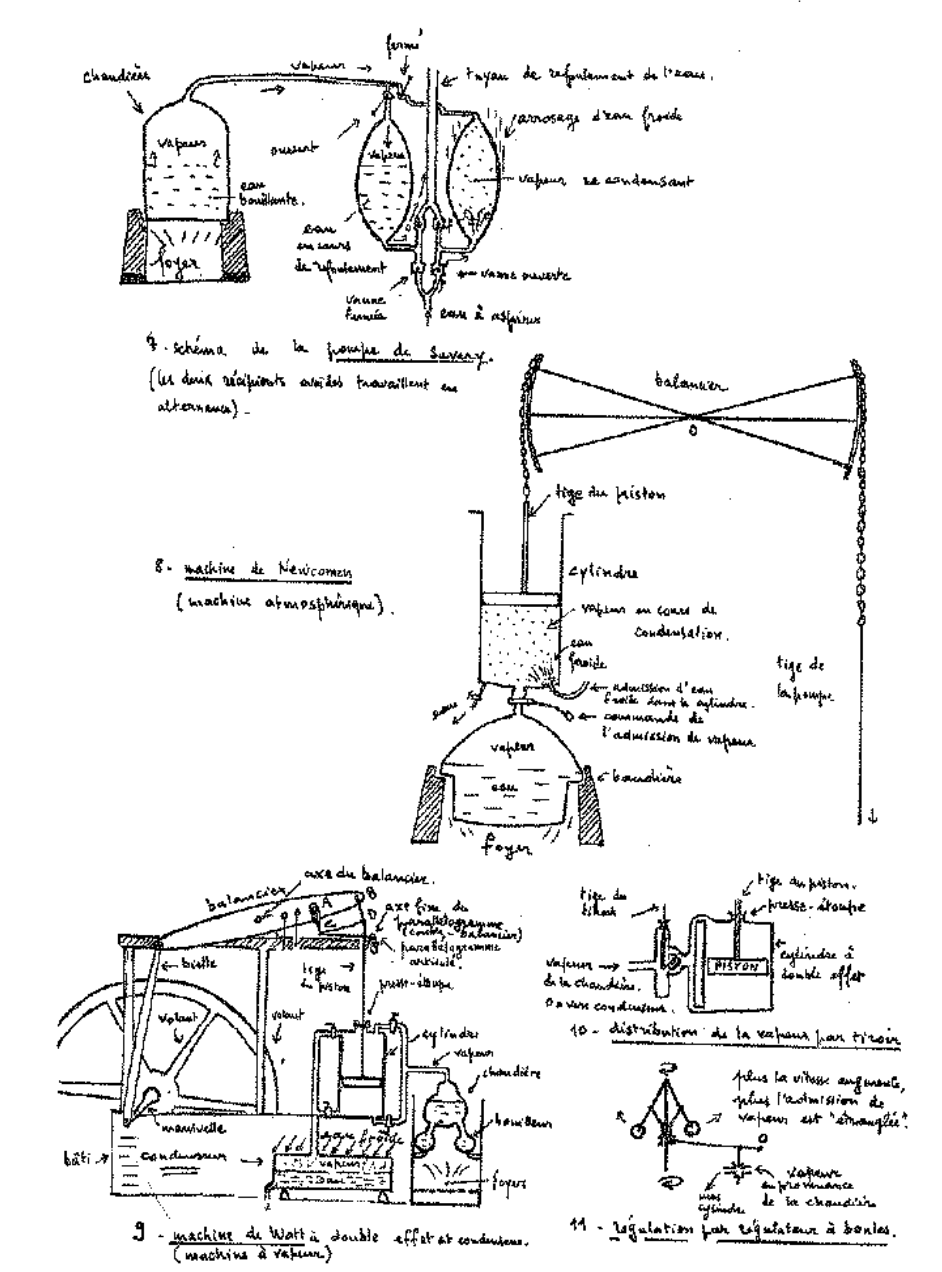 fermé
vapeur →
tuyau de refoulement de l'eau.
chaudière
arrosage d'eau froide
ouvert
vapeur
vapeur
vapeur se condensant
eau
bouillante.
eau
en cours
de refoulement
foyer
vanne ouverte
vanne
fermée
eau à aspirer
7. schéma de la pompe de Savery.
(les deux récipients ovoïdes travaillent en
alternance).
balancier
O
tige du piston
8. machine de Newcomen
(machine atmosphérique).
cylindre
vapeur en cours de
condensation.
eau
froide
tige de
la pompe
admission d'eau
froide dans le cylindre.
eau
commande de
l'admission de vapeur
vapeur
eau
foyer
axe du balancier.
balancier
A
B
C
D
axe fixe du
parallélogramme
(contre-balancier)
parallélogramme
articulé.
bielle
tige
du piston
presse-étoupe
volant
volant
cylindre
vapeur
chaudière
manivelle
bouilleur
eau froide
bâti
condenseur
vapeur
eau
foyers
9 - machine de Watt à double effet et condenseur.
(machine à vapeur)
tige du piston.
tige du
tiroir
presse-étoupe
cylindre à
double effet
PISTON
vapeur
de la chaudière.
O vers condenseur.
10 - distribution de la vapeur par tiroir
plus la vitesse augmente,
plus l'admission de
vapeur est "étranglée".
vapeur
en provenance
de la chaudière
vers
cylindre
11 - régulation par régulateur à boules.